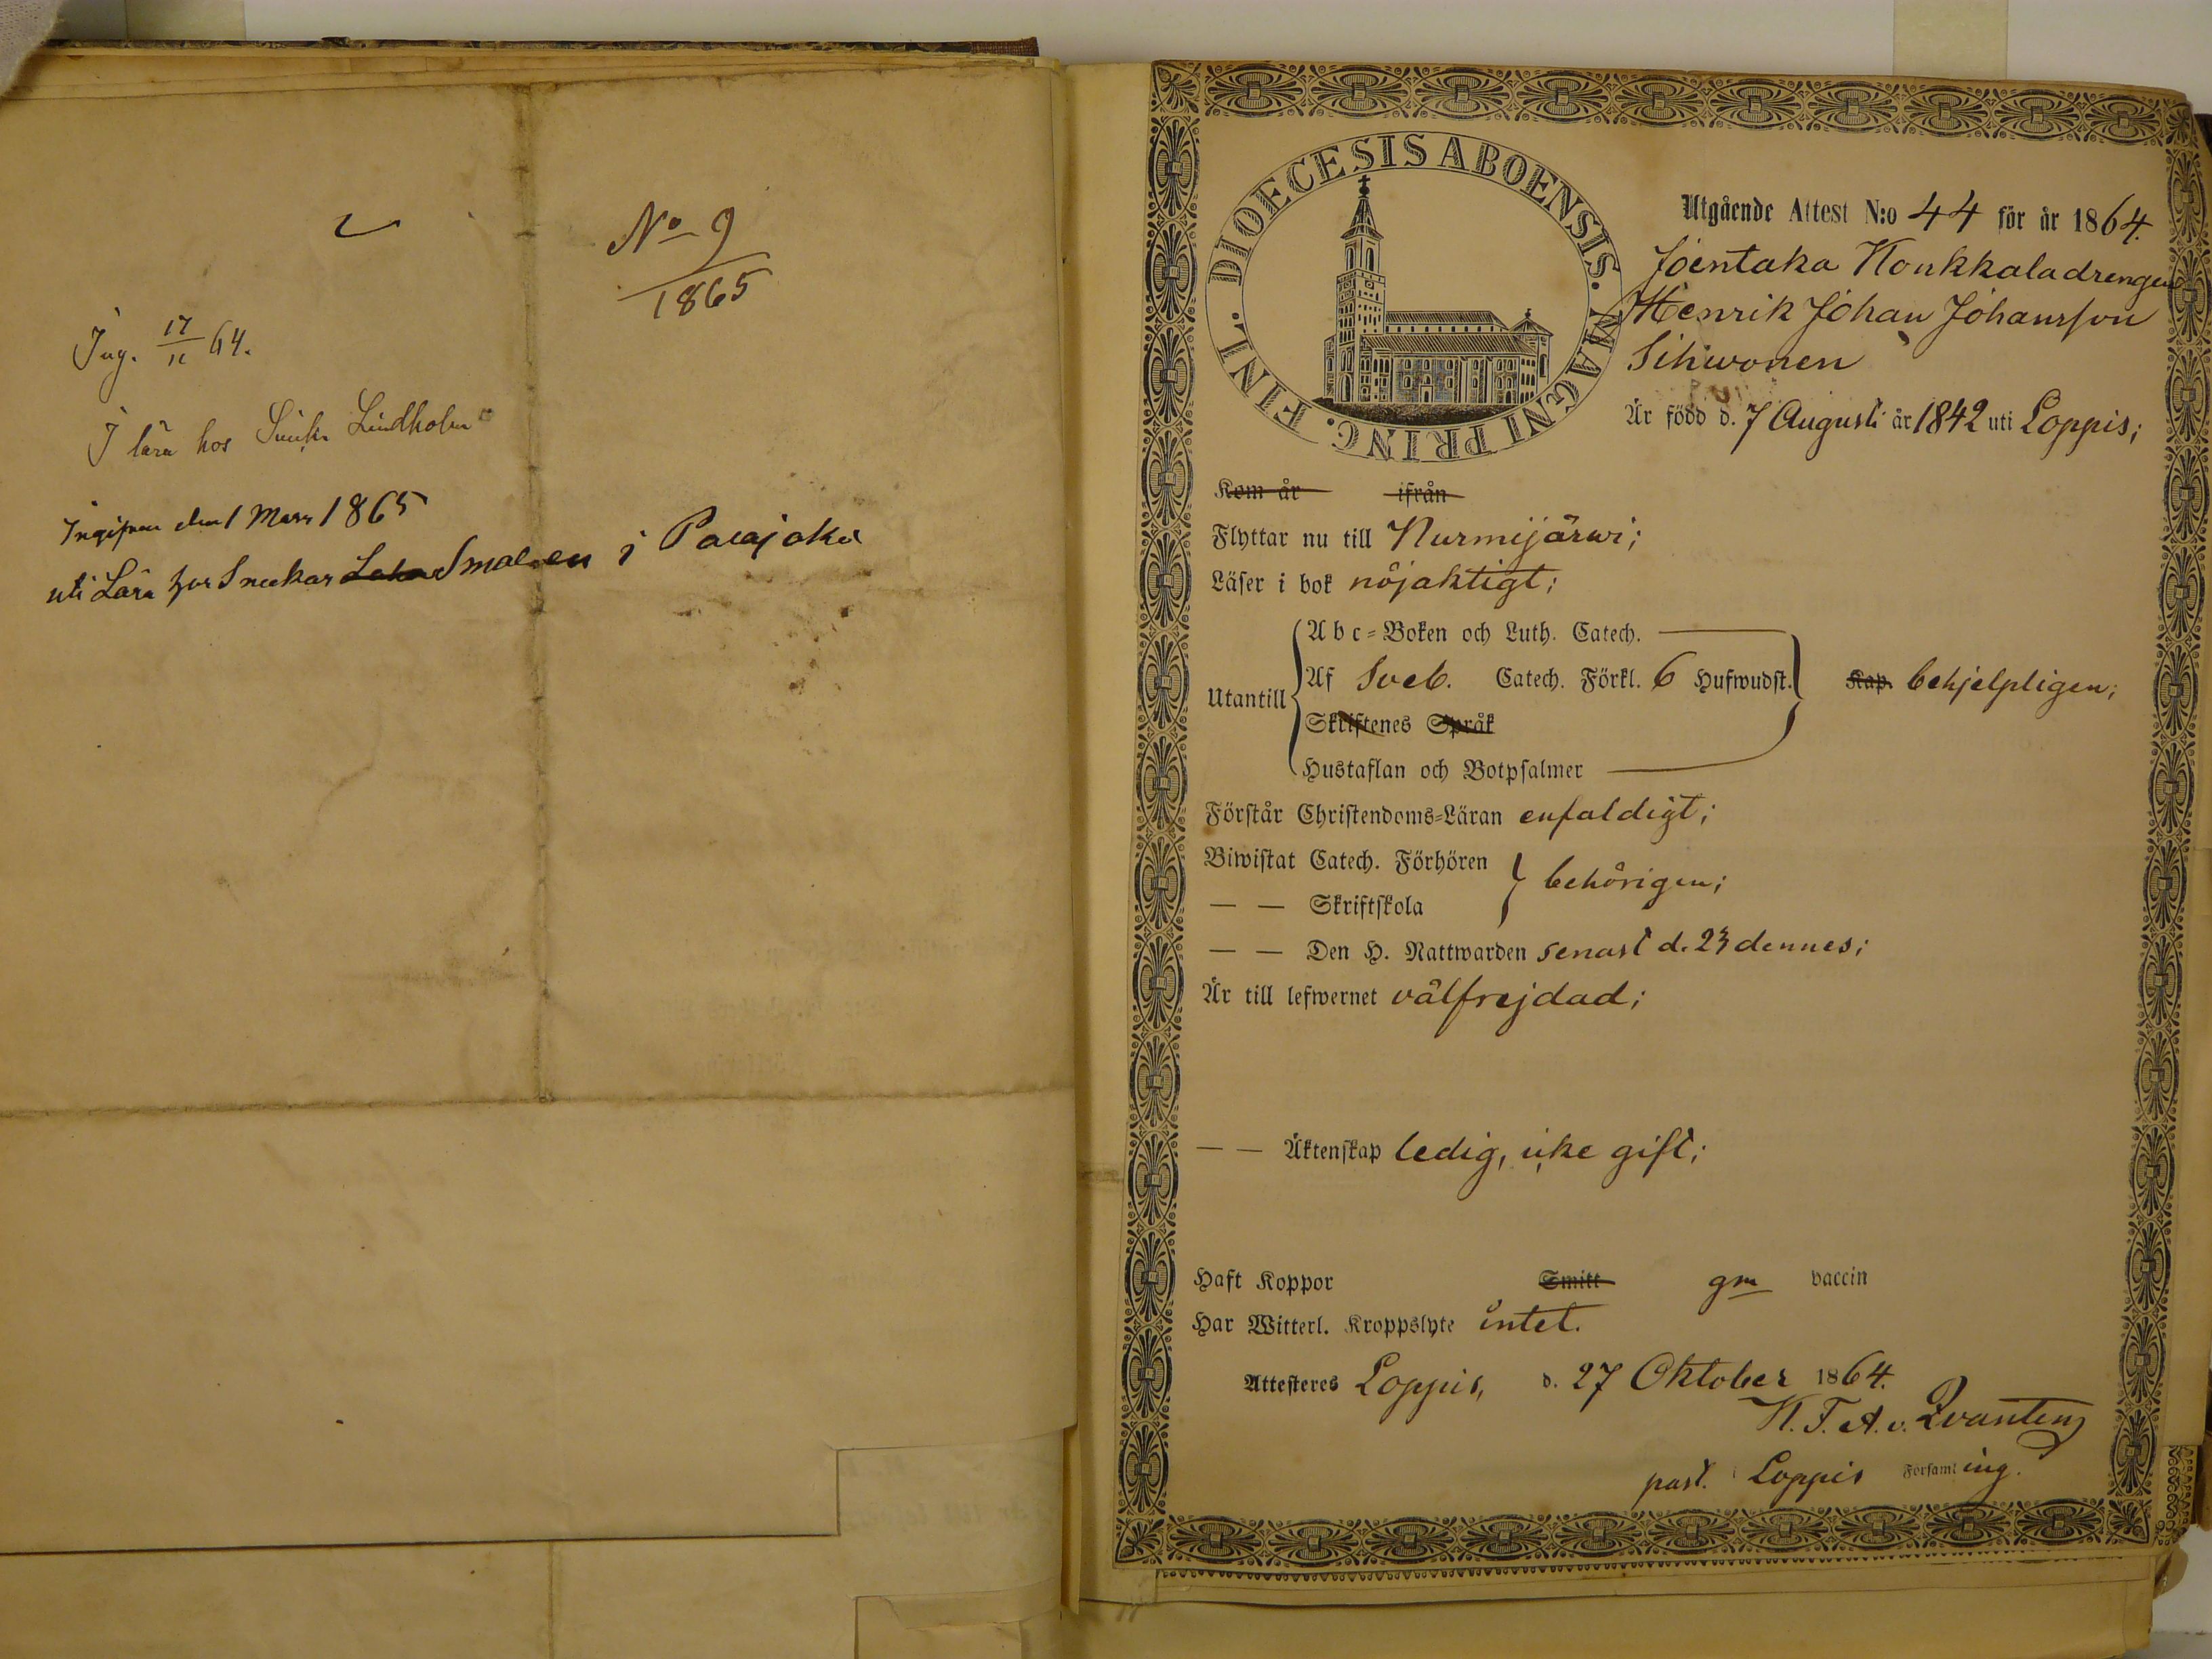 No 9
1865
Ing. 17/11 64.
I lära hos Snick. Lindholm
den 1 Mars 1865
uti Lära hos Snickar Smalen i Palajoki
DIOECESIS ABOENSIS. MAGNI PRINC. FINL.
Utgående Attest N:o 44 för år 1864.
Joentaka Houkkaladrengen
Henrik Johan Johansson
Sihwonen
Är född d. 7 Augusti år 1842 uti Loppis;
Kom år ifrån
Flyttar nu till Nurmijärwi;
Läser i bok nöjaktigt;
Utantill
Abc-Boken och Luth. Catech.
Af Sveb. Catech. Förkl. 6 Hufwudst. Kap. behjelpligen;
Skriftenes Språk
Hustaflan och Botpsalmer
Förstår Christendoms-Läran enfaldigt;
Biwistat Catech. Förhören
— — Skriftskola behörigen;
— — Den H. Nattwarden senast d. 23 dennes;
Är till lefwernet välfrejdad;
— — Äktenskap ledig, icke gift;
Haft Koppor Smitt gm vaccin
Har Witterl. Kroppslyte intet.
Attesteres Loppis, d. 27 Oktober 1864.
K. F. A. v. Qvanten
past. i Loppis Församl ing.